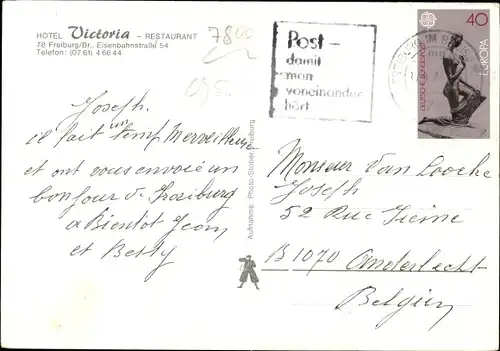 HOTEL Victoria – RESTAURANT
78 Freiburg/Br., Eisenbahnstraße 54
Telefon: (07 61) 4 66 44
7800
Post –
damit
man
voneinander
hört
40
DEUTSCHE BUNDESPOST
EUROPA
Joseph.
il fait un temp Merveilleux
et ont vous envoie un
bonjour d. Freiburg
a Bientot Jean
et Betty
Aufnahme: Photo-Stober, Freiburg
Monsieur Van Loocke
Joseph
52 Rue
B 1070 Anderlecht
Belgien